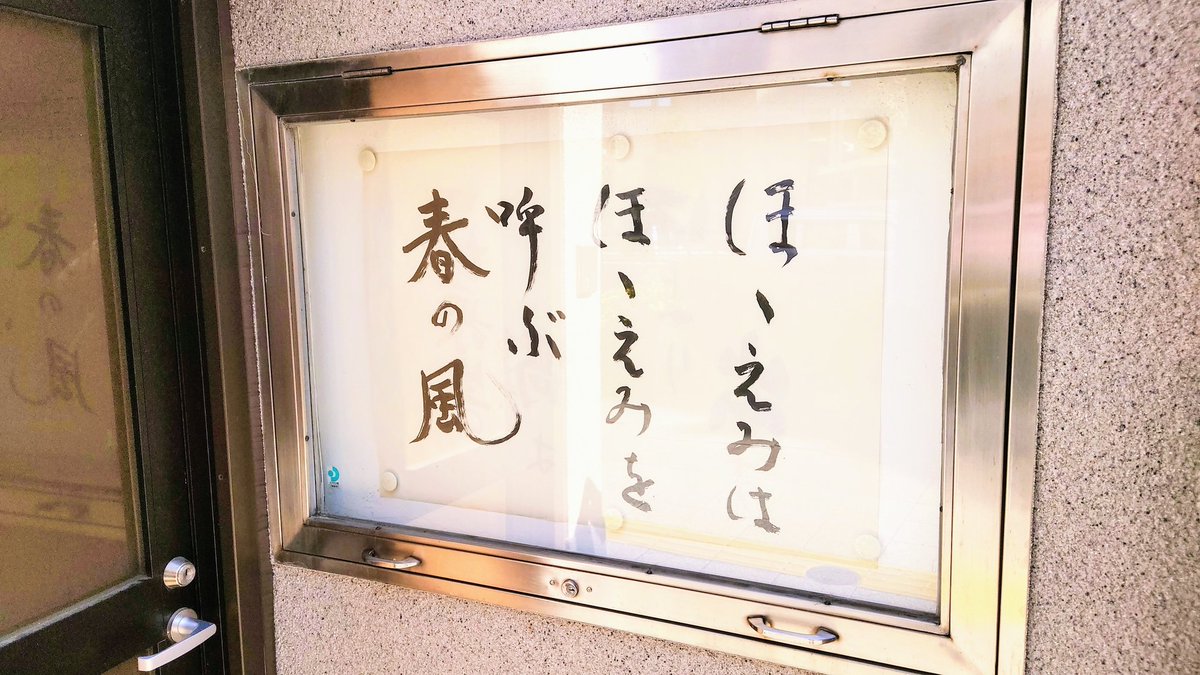 ほゝえみは
ほゝえみを
呼ぶ
春の風